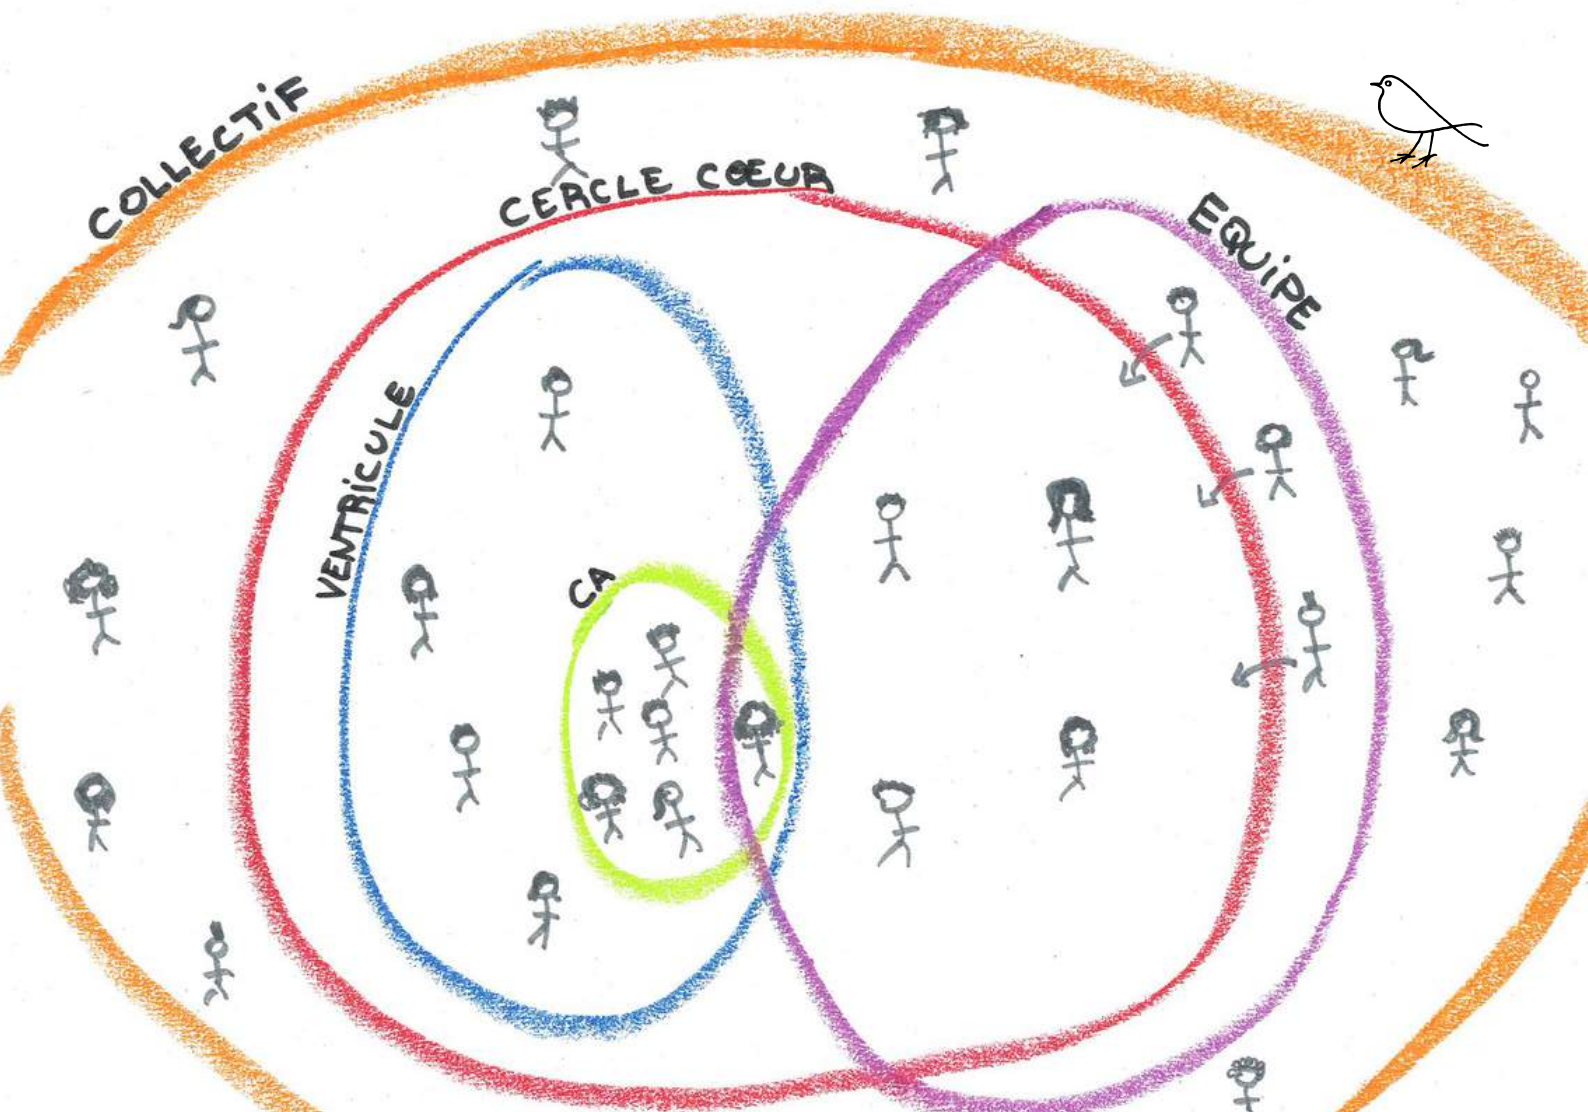 COLLECTiF
CERCLE CŒUR
EQUiPE
VENTRiCULE
CA